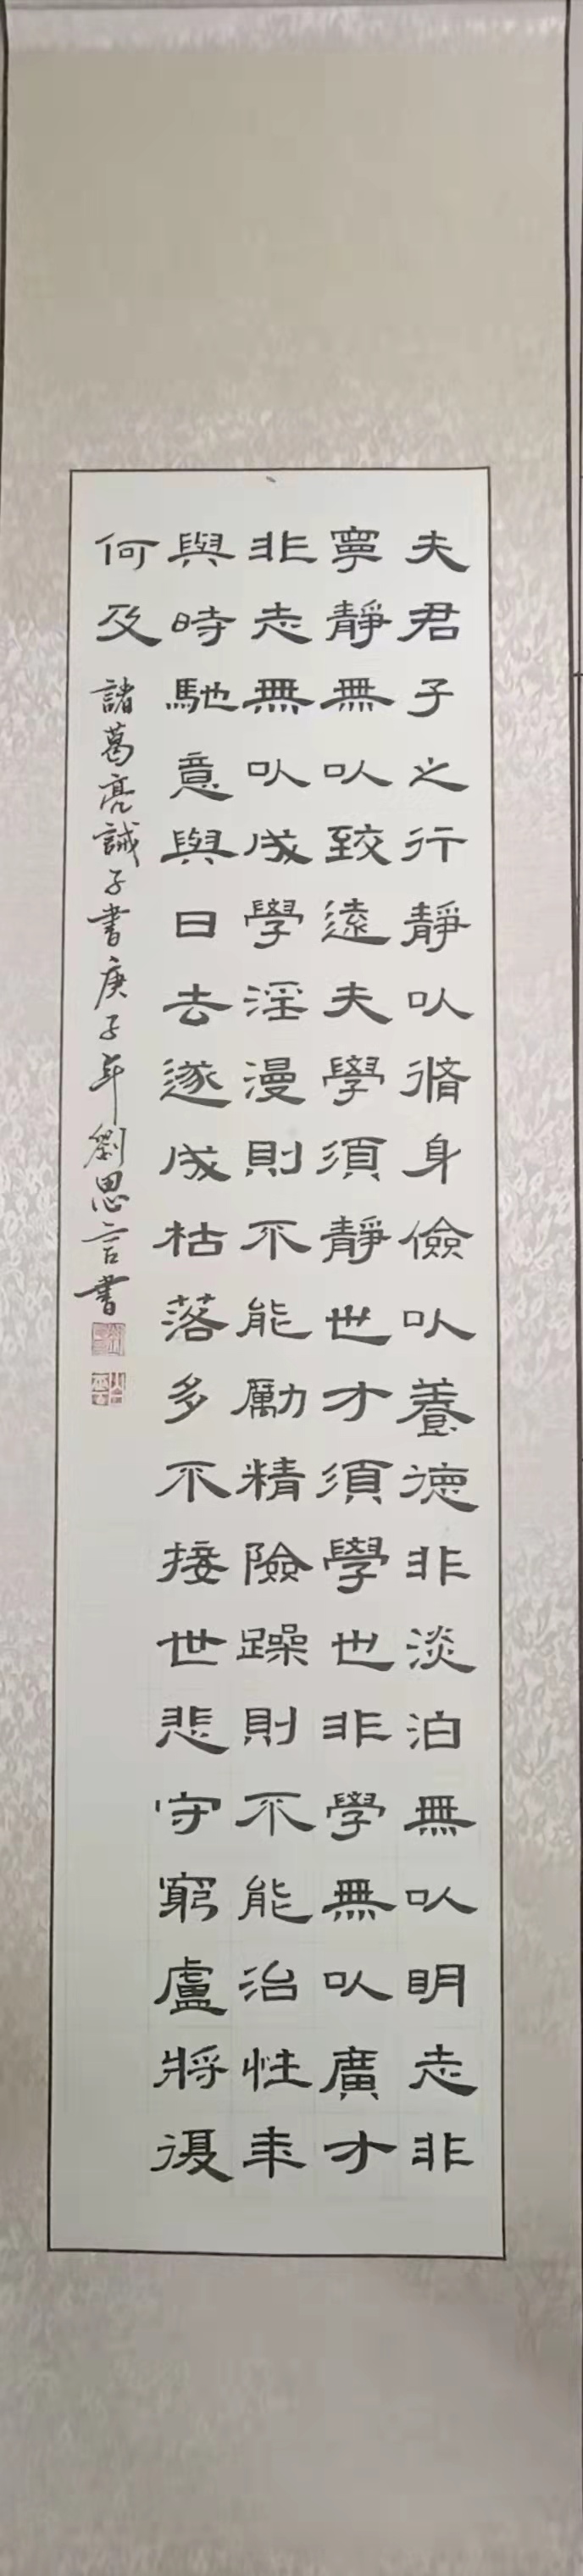 夫君子之行靜以脩身儉以養德非淡泊無以明志非
寧靜無以致遠夫學須靜也才須學也非學無以廣才
非志無以成學淫漫則不能勵精險躁則不能治性年
與時馳意與日去遂成枯落多不接世悲守窮廬將復
何及
諸葛亮誡子書庚子年劉思言書